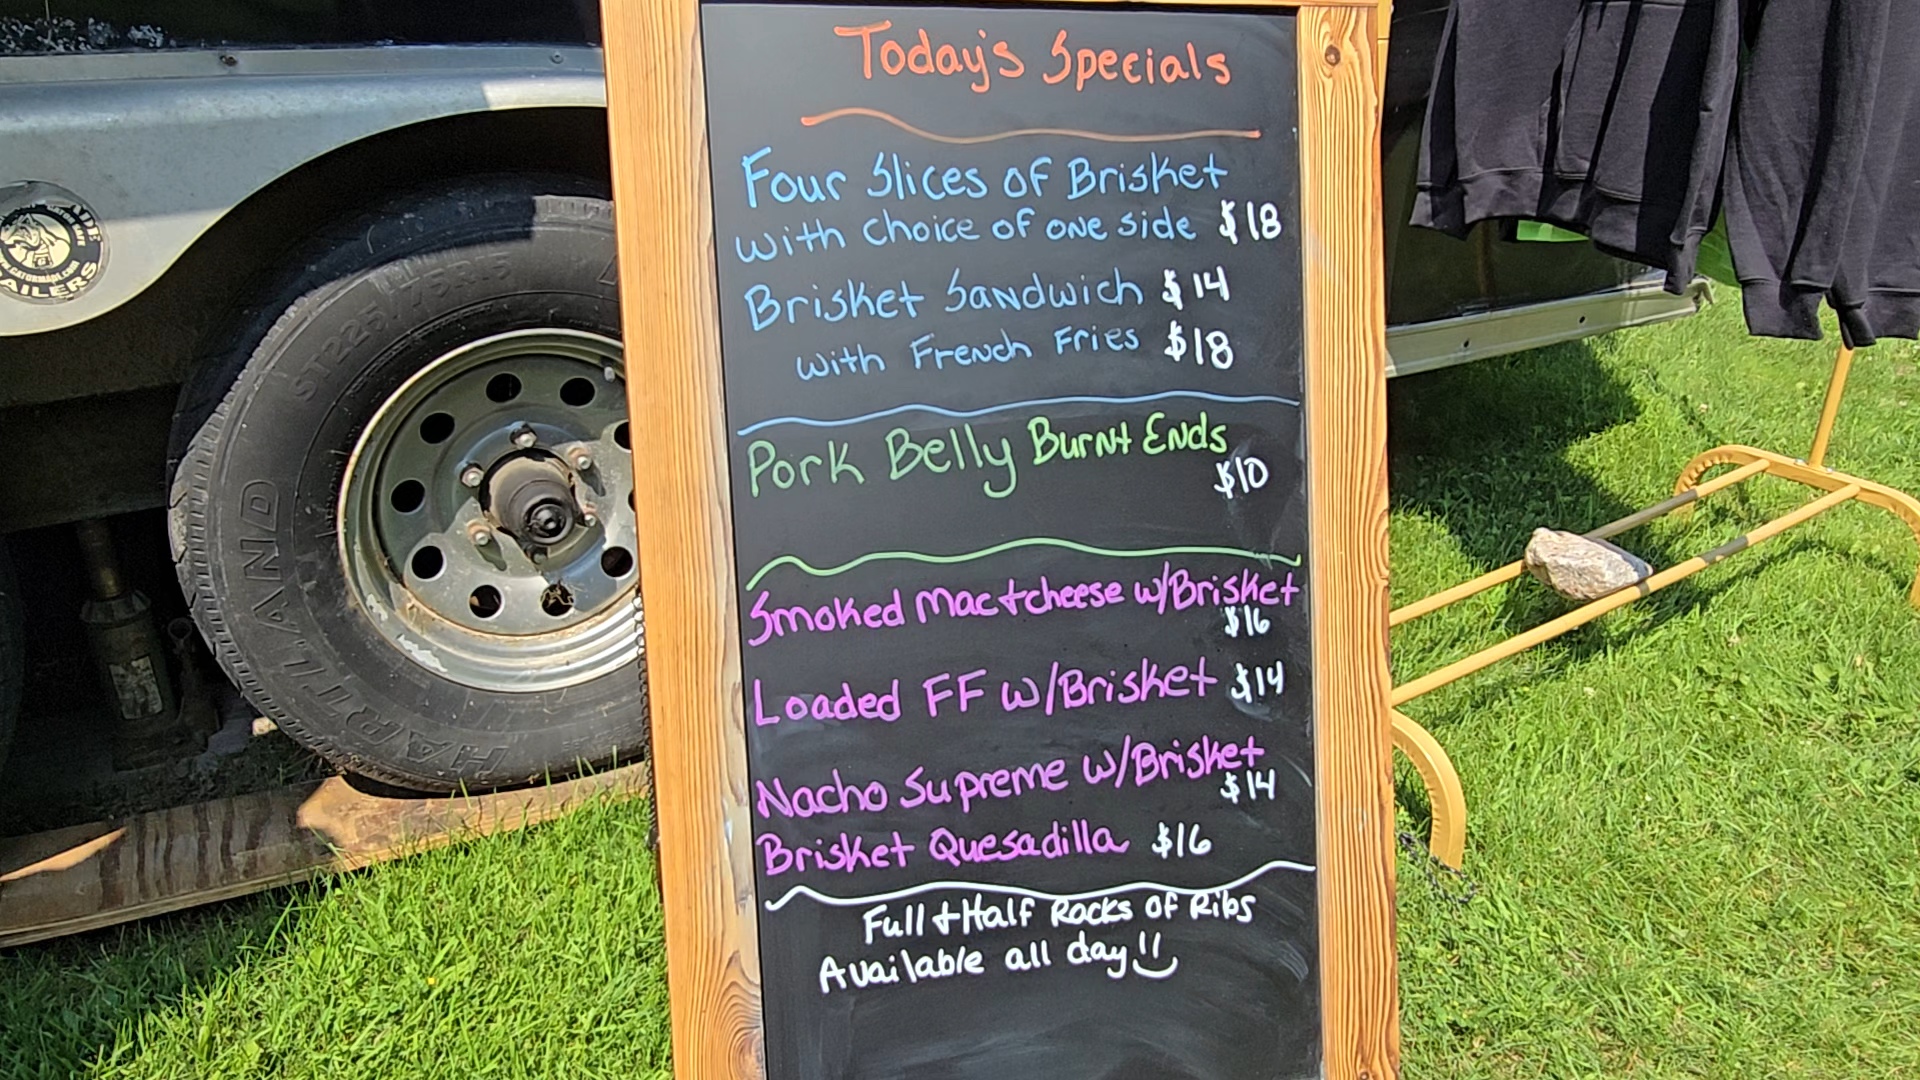 Today's Specials
Four Slices of Brisket
with choice of one side $18
Brisket Sandwich $14
with French Fries $18
Pork Belly Burnt Ends
$10
Smoked Mac+cheese w/Brisket
$16
Loaded FF w/Brisket $14
Nacho Supreme w/Brisket
$14
Brisket Quesadilla $16
Full + Half Racks of Ribs
Available all day!!
HARTLAND
ST225/75R15
AILERS